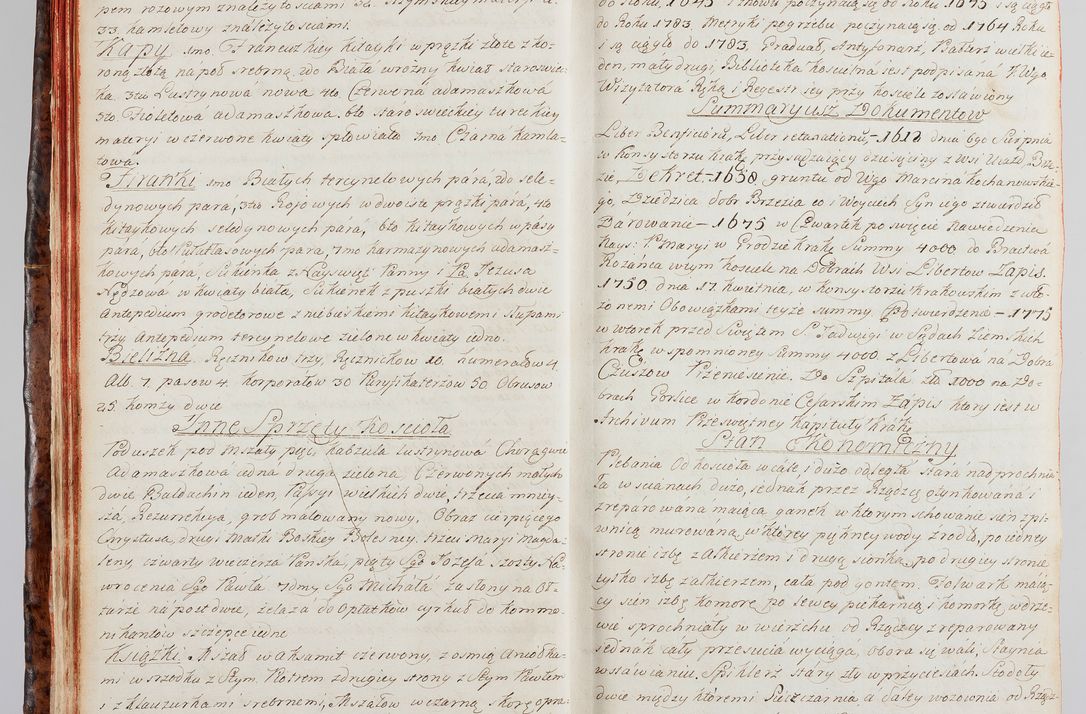 pem rozowym znależytościami 32.
33. hamletowy znależytościami.
Kapy 1mo Francuzkiey kitayki w prążki złote z ko-
roną złotą na poł srebrną, 2do Biała w rożny kwiat staroswie-
cka. 3tia Lustrynowa nowa 4to. Czerwona adamaszkowa
5to Fioletowa adamaszkowa. 6to staro swieckiey tureckiey
materyi w czerwone kwiaty spłowiała 7mo Czarna hamle-
towa.
Firanki 1mo Białych tercynelowych pará, 2do sele-
dynowych para, 3tio Rożowych w dwoiste prążki pará, 4to
kitaykowych seledynowych pará, 5to kitaykowych w pasy
pará, 6to fioletowych pará, 7mo karmazynowych adamasz-
kowych para, Sukienka z Nayswięt: Panny i Pa: Jezusa
w kwiaty biała, Sukienek z puszki białych dwie
Antepedium grodetorowe z niebieskiemi kitaykowemi słupami
trzy antepedium tercynelowe zielone w kwiaty iedno.
Bielizna. Ręcznikow trzy, Ręczniczkow 10. humerałow 4
Alb. 7. pasow 4. korporałow 30 Puryfikaterzow 50 Obrusow
25. komży dwie
Inne Sprzęty Koscioła
Poduszek pod mszały pięć, kapzula lustrynowa Chorągwie
Adamaszkowa iedna druga zielona, Czerwonych małych
dwie Baldachin ieden, Pasyi wielkich dwie, trzecia mniey-
sza, Rezurekcya, grob malowany nowy, Obraz cierpiącego
Chrystusa, drugi Matki Boskiey Bolesney, trzeci Maryi Magda-
leny, czwarty wieczerza Pańska, piąty Sgo Jozefa, szosty Na-
wrocenia Sgo Pawła, 7dmy Sgo Michała, Zasłony na Oł-
tarze na post dwie, żelaza do Opłatkow cyrkuł do kommu-
nikantow szczypce iedne
Książki. Mszał w axamit czerwony, z osmią Aniołka-
mi w srzodku z Stym. Piotrem z drugiey strony z Stym Pawłem
i z klauzurkami srebrnemi, Mszałow w czarną skorę opra-
do Roku. 1645 i znowu poczynaią się od Roku 1695 i są ciągłe
do Roku 1783. Metryki pogrzebu poczynaią się od 1764 Roku
i są ciągłe do 1783. Graduał, Antyfonarz, Psałterz wielki ie-
den, mały drugi, Biblioteka koscielna iest podpisaná J Wgo
Wizytatora Ręką i Regestr iey przy kosciele zostawiony
Summaryusz Dokumentow
Liber Beneficioru, Liber retaxationu, – 1618 dnia 6go Sierpnia
w Konsystorzu Krakł: przysądzaiący dziesięciny z Wsi Uiazd, Brze-
zie, Dekret – 1658, gruntu od Wgo Marcina Kochanowskie-
go, Dziedzica dobr Brzezia co i Woyciech Syn iego ztwierdził
Darowanie – 1675 w Czwartek po swięcie Nawiedzenia
Nays: P. Maryi w Grodzie Krakł: Summy 4000 do Bractwa
Rożańca w tym kosciele na Dobrach Wsi Libertow Zapis.
1750 dnia 17. kwietnia, w konsystorzu Krakowskim z wło-
żonemi Obowiązkami teyże summy Potwierdzenie – 1775
w wtorek przed Swiętam S. Jadwigi w Sądach Ziemskich
Krakł: wspomnioney summy 4000. z Libertowá na Dobra
Czuszow Przeniesienie. Do Szpitalá Złł 1000 na Do-
brach Gorlice w kordonie Cesarskim Zapis ktory iest w
Archivum Przeswiętney Kapituły Krakł:
Stan Ekonomiczny
Plebania Od koscioła wcale i dużo odległa stara nadprochnia-
ła w scianach dużo, iednak przez Rządzcę otynkowaná i
zreparowána maiąca ganek w ktorym schowanie sien z pi-
wnicą murowaną w ktorey piękney wody zrodło, po iedney
stronie izbę z alkierzem i drugą sionką, po drugiey stronie
tylko izbę z alkierzem, cała pod gontem. Folwark maią-
cy sien izbę komorę po lewey piekarnią i komorkę w drze-
wie sprochniały w wierzchu od Rządzcy zreparowany
iednak cały przesucia wyciąga, obora się wali, Staynia
w stáwianiu, Spiklerz stáry zły w przyciesiach. Stodoły
dwie między ktoremi Sieczkarnia, a Także wozownia od Rządz-